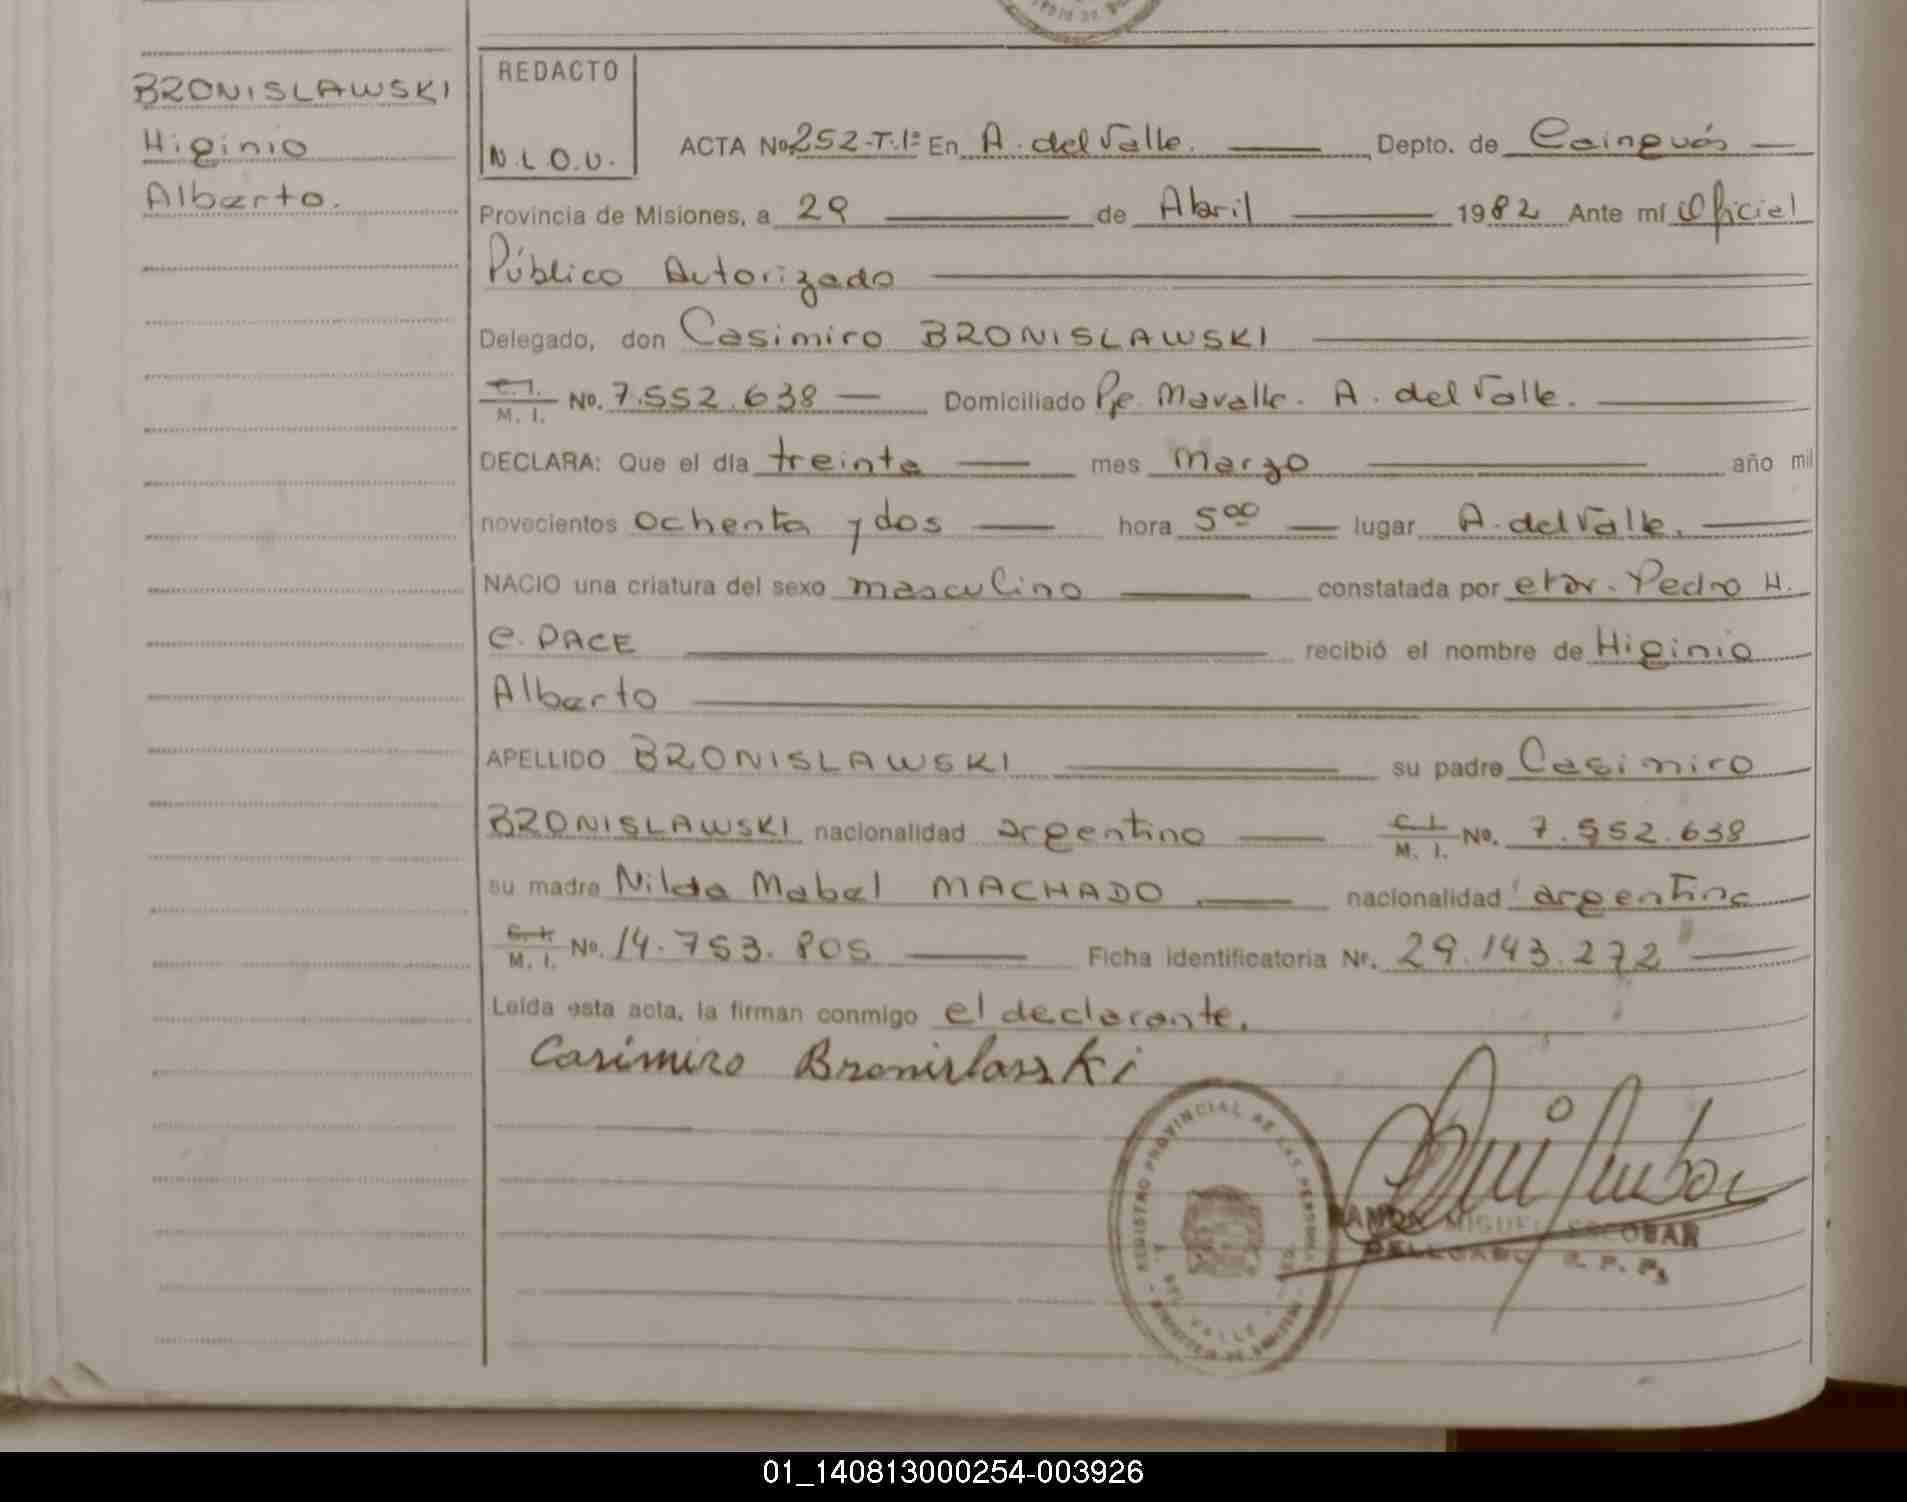 BRONISLAWSKI
Higinio
Alberto.
REDACTO
N.L.O.V.
ACTA No 252-T.1º En A. del Valle. Depto. de Cainguás
Provincia de Misiones, a 29 de Abril 1982 Ante mí Oficial
Público Autorizado
Delegado, don Casimiro BRONISLAWSKI
C. I. M. I. No. 7.552.638 Domiciliado Pje. Mavalle. A. del Valle.
DECLARA: Que el día treinta mes Marzo año mil
novecientos ochenta y dos hora 5 00 lugar A. del Valle.
NACIO una criatura del sexo masculino constatada por Pedro H.
C. PACE recibió el nombre de Higinio
Alberto
APELLIDO BRONISLAWSKI su padre Casimiro
BRONISLAWSKI nacionalidad argentino C. I. M. I. No. 7.552.638
su madre Nilda Mabel MACHADO nacionalidad argentina
C. I. M. I. No. 14.753.805 Ficha identificatoria Nr. 29.143.272
Leída esta acta, la firman conmigo el declarante.
Casimiro Bronislawski
REGISTRO PROVINCIAL DE LAS PERSONAS
A. DEL VALLE
PROVINCIA DE MISIONES
RAMON MIGUEL ESCOBAR
DELEGADO R. P. P.
01_140813000254-003926